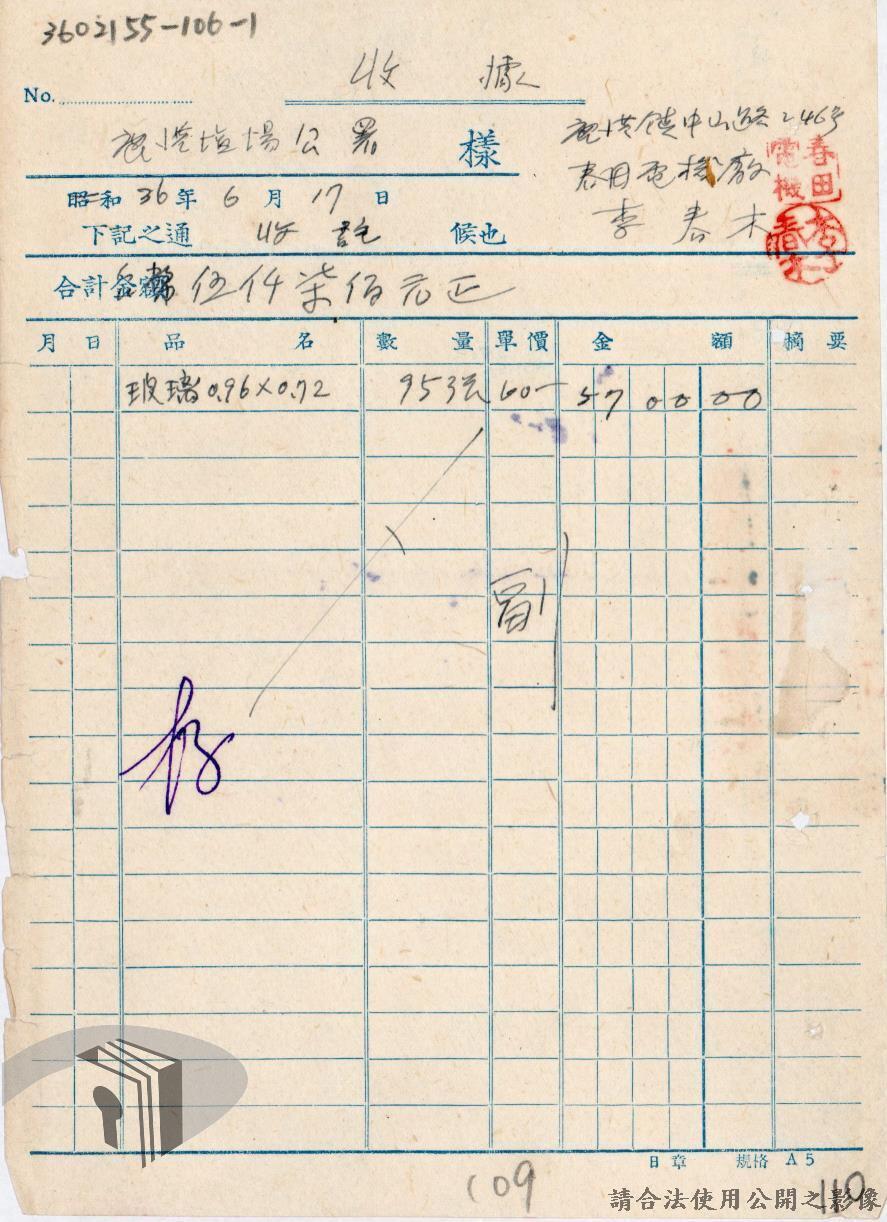 3602155-106-1
收據
No.
鹿港塩場公署 樣
鹿港鎮中山路246号
春田電機廠
李春木
春田
電機
昭和36年6月17日
下記之通 收訖 候也
合計金額 伍仟柒佰元正
月 日 品名 數量 單價 金額 摘要
玻璃0.96×0.72 60- 5700 00
副
日章 規格 A5
109
110
請合法使用公開之影像